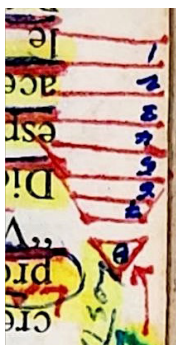 cre
pro
„V
Di
esp
ace
le
1
2
3
4
5
6
7
8